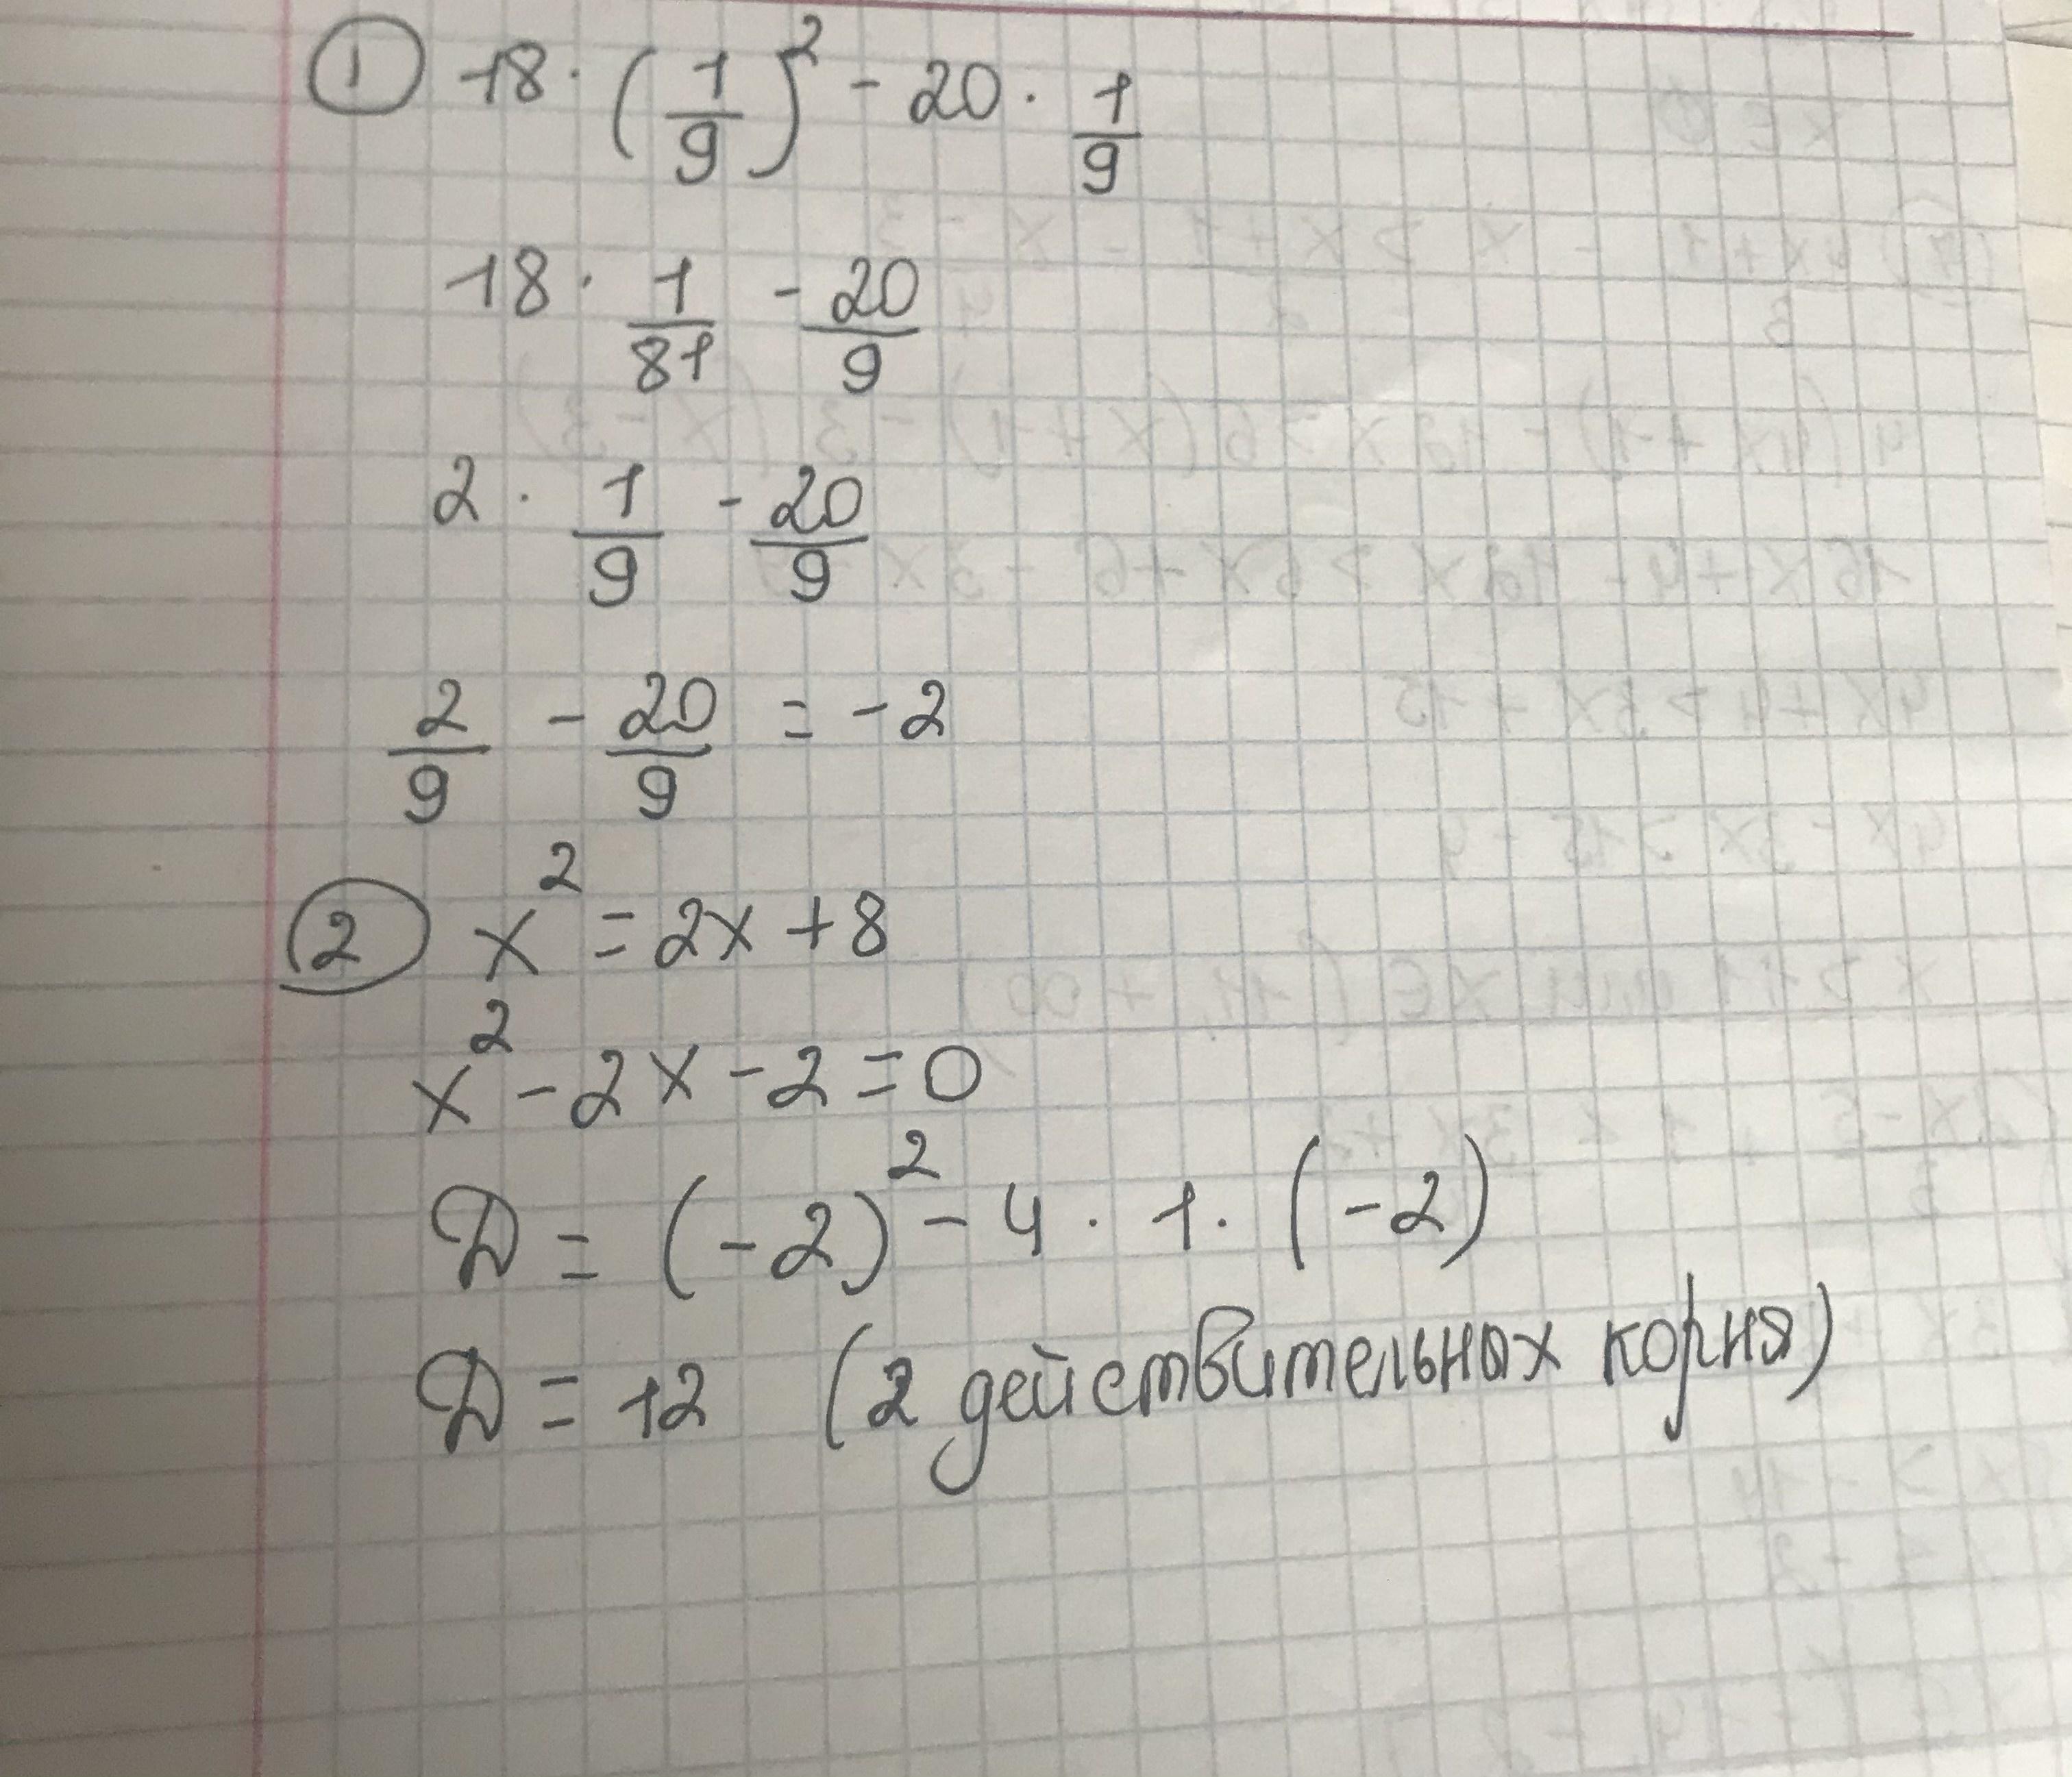 ① 18 · (1/9)² - 20 · 1/9
18 · 1/81 - 20/9
2 · 1/9 - 20/9
2/9 - 20/9 = -2
② x² = 2x + 8
x² - 2x - 2 = 0
D = (-2)² - 4 · 1 · (-2)
D = 12 (2 действительных корня)